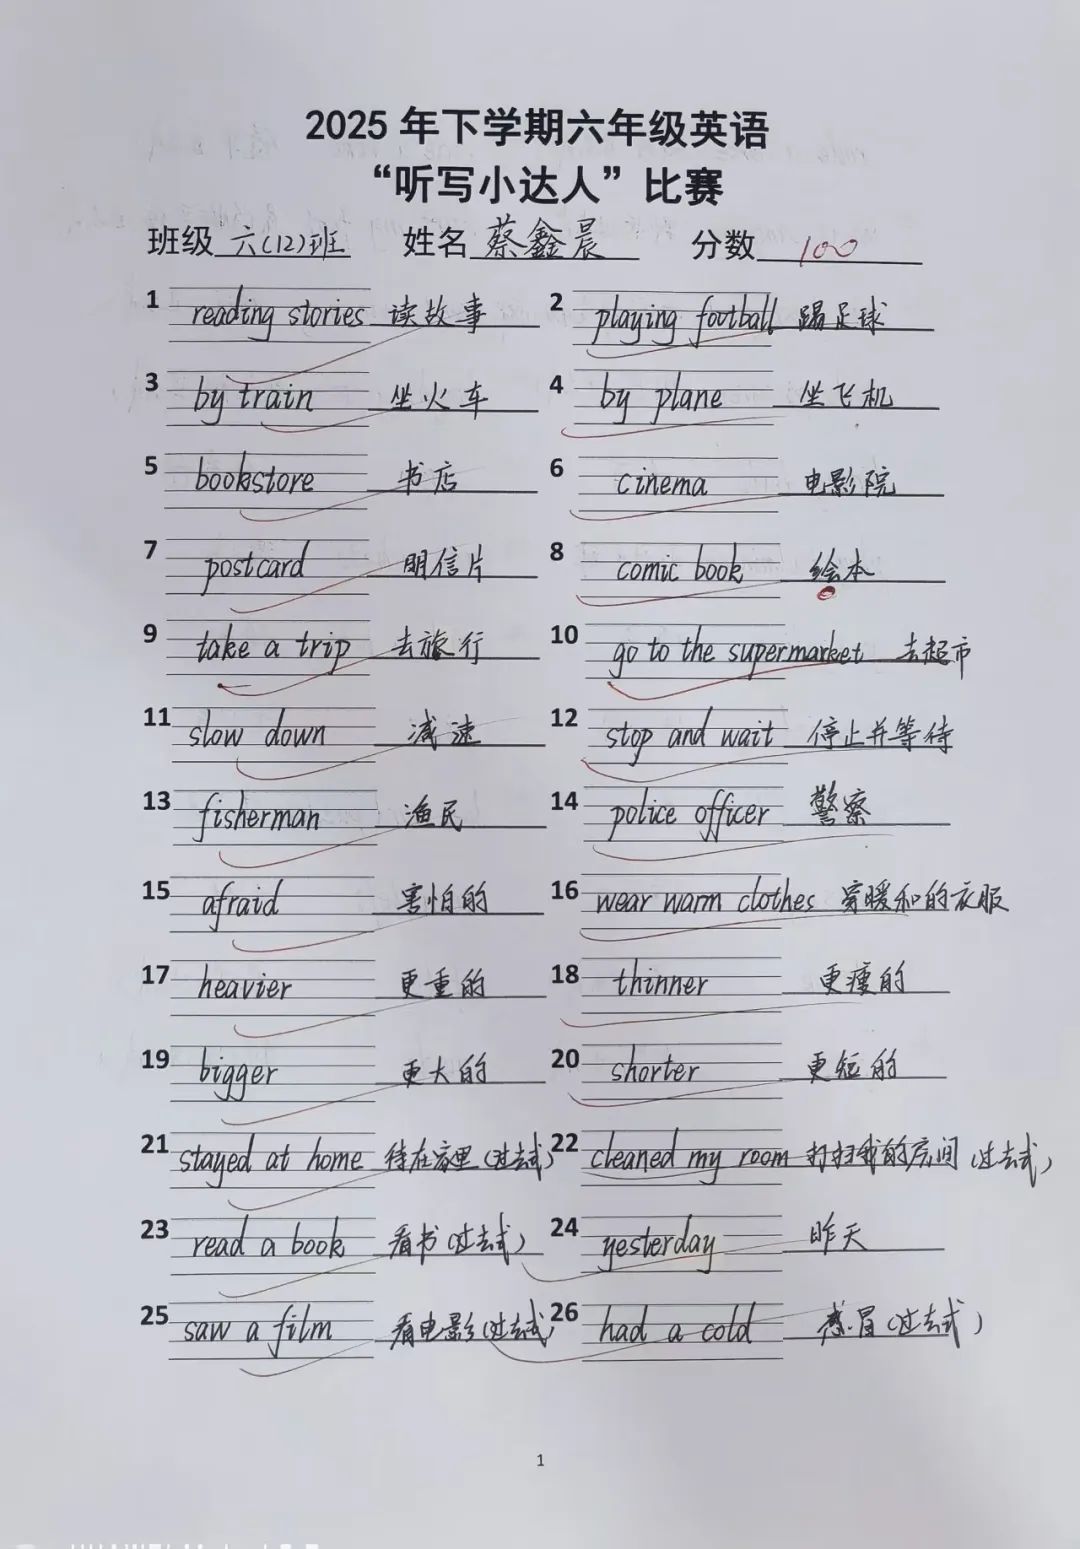 2025年下学期六年级英语
“听写小达人”比赛
班级 六(12)班 姓名 蔡鑫晨 分数 100
1 reading stories 读故事 2 playing football 踢足球
3 by train 坐火车 4 by plane 坐飞机
5 bookstore 书店 6 cinema 电影院
7 postcard 明信片 8 comic book 绘本
9 take a trip 去旅行 10 go to the supermarket 去超市
11 slow down 减速 12 stop and wait 停止并等待
13 fisherman 渔民 14 police officer 警察
15 afraid 害怕的 16 wear warm clothes 穿暖和的衣服
17 heavier 更重的 18 thinner 更瘦的
19 bigger 更大的 20 shorter 更短的
21 stayed at home 待在家里(过去式) 22 cleaned my room 打扫我的房间(过去式)
23 read a book 看书(过去式) 24 yesterday 昨天
25 saw a film 看电影(过去式) 26 had a cold 感冒(过去式)
1